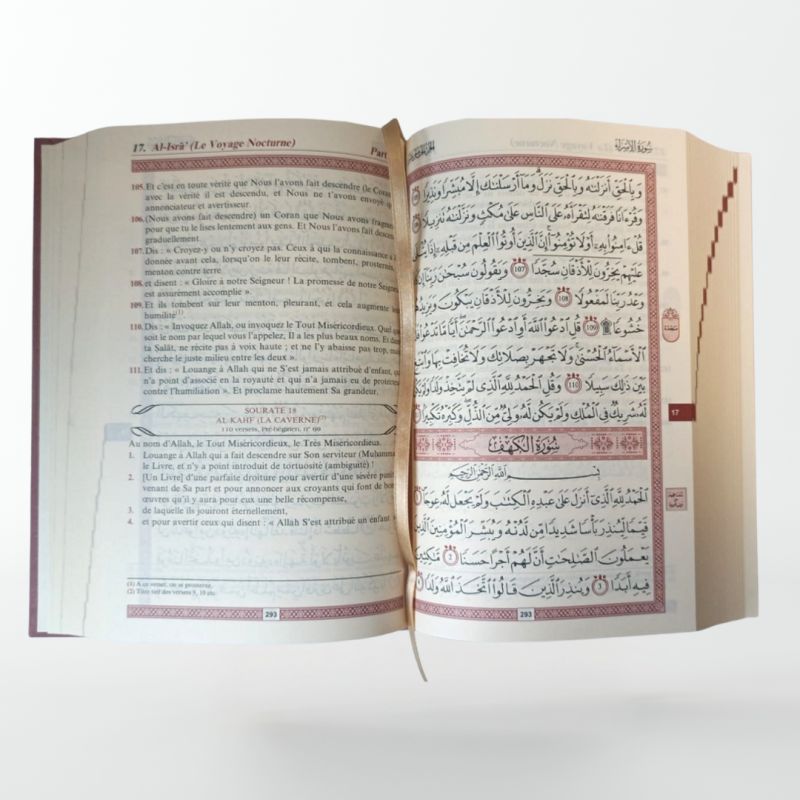 17. Al-Isrā' (Le Voyage Nocturne)
Part
105. Et c'est en toute vérité que Nous l'avons fait descendre (le Coran
avec la vérité il est descendu, et Nous ne t'avons envoyé qu
annonciateur et avertisseur.
106. (Nous avons fait descendre) un Coran que Nous avons fragm
pour que tu le lises lentement aux gens. Et Nous l'avons fait desc
graduellement.
107. Dis : « Croyez-y ou n'y croyez pas. Ceux à qui la connaissance a
donnée avant cela, lorsqu'on le leur récite, tombent, prosternés
menton contre terre
108. et disent : « Gloire à notre Seigneur ! La promesse de notre Seigne
est assurément accomplie ».
109. Et ils tombent sur leur menton, pleurant, et cela augmente le
humilité(1).
110. Dis : « Invoquez Allah, ou invoquez le Tout Miséricordieux. Quel qu
soit le nom par lequel vous l'appelez, Il a les plus beaux noms. Et dans
ta Salât, ne récite pas à voix haute ; et ne l'y abaisse pas trop, mais
cherche le juste milieu entre les deux ».
111. Et dis : « Louange à Allah qui ne S'est jamais attribué d'enfant, q
n'a point d'associé en la royauté et qui n'a jamais eu de protecte
contre l'humiliation ». Et proclame hautement Sa grandeur.
SOURATE 18
AL-KAHF (LA CAVERNE)(2)
110 versets, Pré-hégirien, n° 69
Au nom d'Allah, le Tout Miséricordieux, le Très Miséricordieux.
1. Louange à Allah qui a fait descendre Son serviteur (Muhamma
le Livre, et n'y a point introduit de tortuosité (ambiguïté) !
2. [Un Livre] d'une parfaite droiture pour avertir d'une sévère puni
venant de Sa part et pour annoncer aux croyants qui font de bon
œuvres qu'il y aura pour eux une belle récompense,
3. de laquelle ils jouiront éternellement,
4. et pour avertir ceux qui disent : « Allah S'est attribué un enfant
(1) A ce verset, on se prosterne.
(2) Titre tiré des versets 9, 10 etc.
293
سُورَةُ الإِسْرَاءِ
وَبِالْحَقِّ أَنزَلْنَاهُ وَبِالْحَقِّ نَزَلَ وَمَا أَرْسَلْنَاكَ إِلَّا مُبَشِّرًا وَنَذِيرًا
وَقُرْءَانًا فَرَقْنَاهُ لِتَقْرَأَهُ عَلَى النَّاسِ عَلَى مُكْثٍ وَنَزَّلْنَاهُ تَنزِيلًا
قُلْ ءَامِنُوا بِهِ أَوْ لَا تُؤْمِنُوا إِنَّ الَّذِينَ أُوتُوا الْعِلْمَ مِن قَبْلِهِ إِذَا يُتْلَى
عَلَيْهِمْ يَخِرُّونَ لِلْأَذْقَانِ سُجَّدًا 107 وَيَقُولُونَ سُبْحَانَ رَبِّنَا إِن
وَعْدُ رَبِّنَا لَمَفْعُولًا 108 وَيَخِرُّونَ لِلْأَذْقَانِ يَبْكُونَ وَيَزِيدُهُمْ
خُشُوعًا ۩ 109 قُلِ ادْعُوا اللَّهَ أَوِ ادْعُوا الرَّحْمَنَ أَيًّا مَّا تَدْعُوا
الْأَسْمَاءُ الْحُسْنَى وَلَا تَجْهَرْ بِصَلَاتِكَ وَلَا تُخَافِتْ بِهَا وَابْتَغِ
بَيْنَ ذَلِكَ سَبِيلًا 110 وَقُلِ الْحَمْدُ لِلَّهِ الَّذِي لَمْ يَتَّخِذْ وَلَدًا وَلَمْ
لَّهُ شَرِيكٌ فِي الْمُلْكِ وَلَمْ يَكُن لَّهُ وَلِيٌّ مِّنَ الذُّلِّ وَكَبِّرْهُ تَكْبِيرًا
سُورَةُ الكَهْفِ
بِسْمِ اللَّهِ الرَّحْمَنِ الرَّحِيمِ
الْحَمْدُ لِلَّهِ الَّذِي أَنزَلَ عَلَى عَبْدِهِ الْكِتَابَ وَلَمْ يَجْعَل لَّهُ عِوَجًا
قَيِّمًا لِّيُنذِرَ بَأْسًا شَدِيدًا مِّن لَّدُنْهُ وَيُبَشِّرَ الْمُؤْمِنِينَ الَّذِينَ
يَعْمَلُونَ الصَّالِحَاتِ أَنَّ لَهُمْ أَجْرًا حَسَنًا 2 مَّاكِثِينَ
فِيهِ أَبَدًا 3 وَيُنذِرَ الَّذِينَ قَالُوا اتَّخَذَ اللَّهُ وَلَدًا
293
17